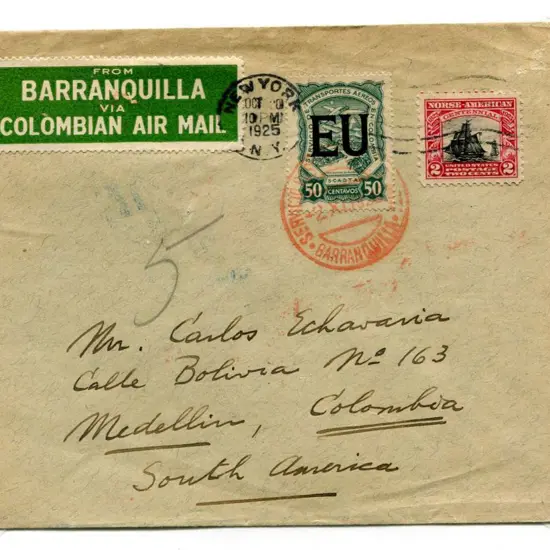 FROM
BARRANQUILLA
VIA
COLOMBIAN AIR MAIL
NEW YORK
OCT
10 PM
1925
N.Y.
TRANSPORTES AEREOS
EU
SCADTA
50 CENTAVOS 50
NORSE-AMERICAN
CENTENNIAL
2 UNITED STATES POSTAGE 2
TWO CENTS
BARRANQUILLA
5
Mr. Carlos Echavaria
Calle Bolivia Nº 163
Medellin, Colombia
South America